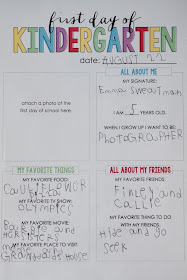 first day of
KINDERGARTEN
date: AUGUST 22
attach a photo of the
first day of school here.
ALL ABOUT ME
MY SIGNATURE:
Emma Sweatman
I AM 5 YEARS OLD.
WHEN I GROW UP I WANT TO BE:
PHOTOGRAPHER
MY FAVORITE THINGS
MY FAVORITE FOOD:
MY FAVORITE TV SHOW:
OLYMPICS
MY FAVORITE MOVIE:
BARBIE and
HORSES
MY FAVORITE PLACE TO VISIT:
ALL ABOUT MY FRIENDS
MY FRIENDS:
Finley and
Callie
MY FAVORITE THING TO DO
WITH MY FRIENDS:
Hide and go
Seek